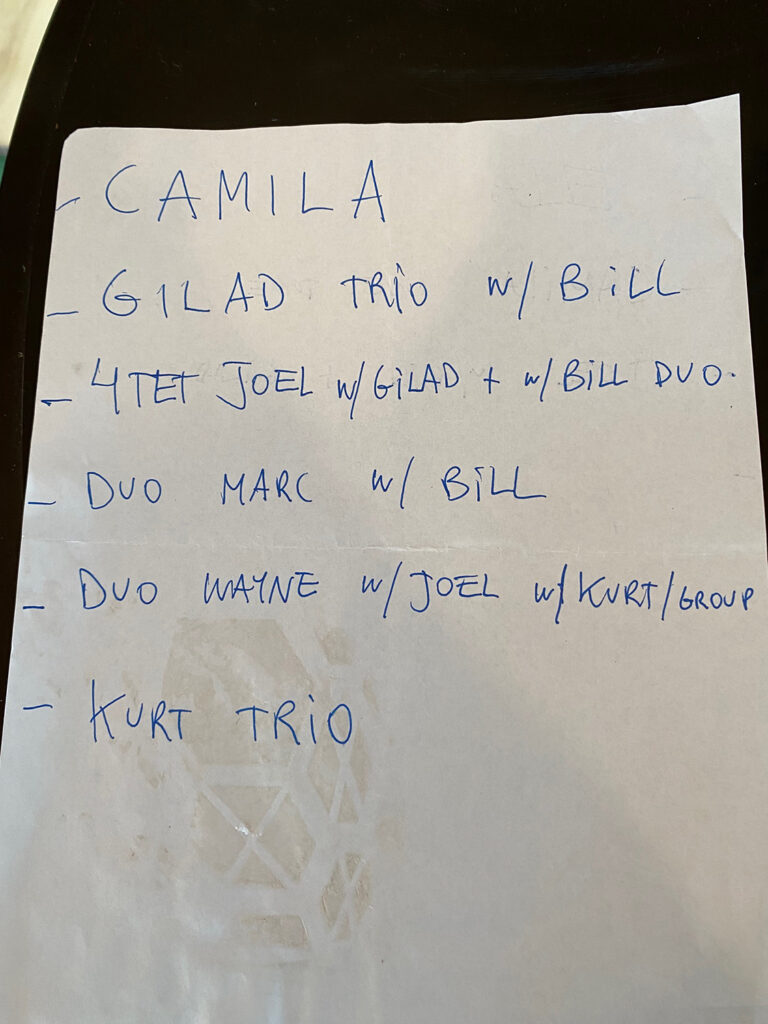 - CAMILA
- GILAD TRIO w/ BILL
- 4TET JOEL w/GILAD + w/BILL DUO.
- DUO MARC w/ BILL
- DUO WAYNE w/JOEL w/KURT/GROUP
- KURT TRIO